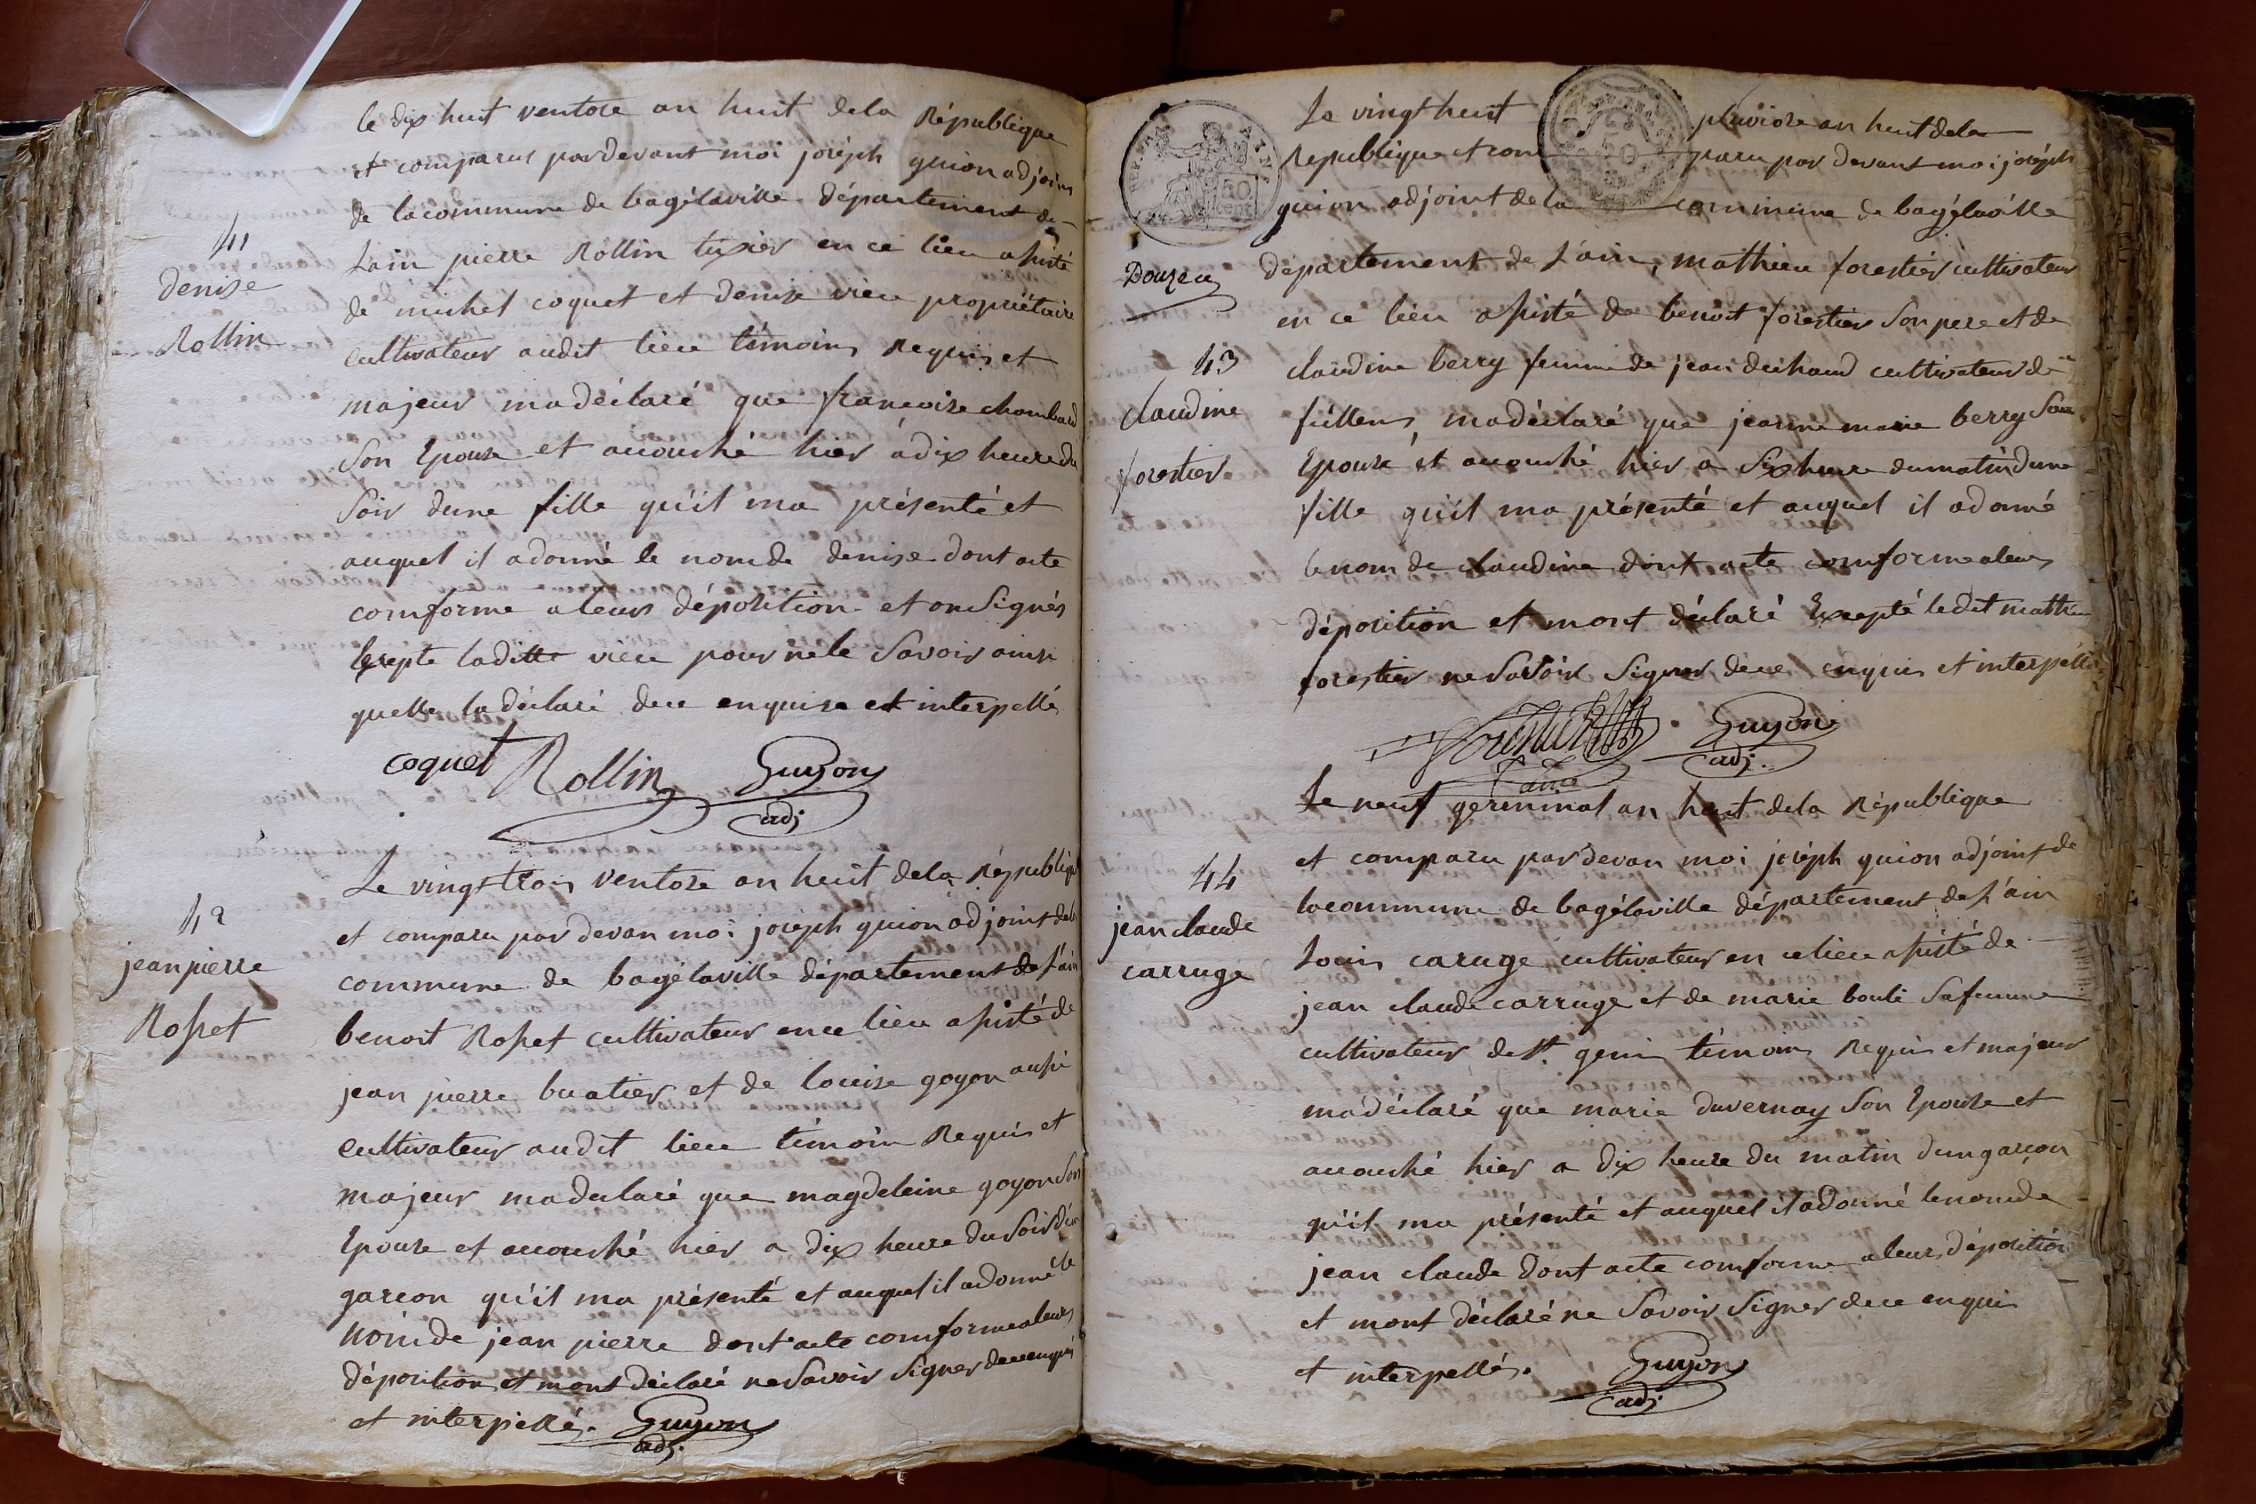 le dix huit ventose an huit dela République
et comparus pardevant moi joseph guion adjoint
de lacommune de bagélaville département de
Lain pierre Rollin tixier en ce lieu assisté
41
denise
Rollin
de michel coquet et denise vieu propriétaire
cultivateur audit lieu témoins Requis et
majeur madéclaré que francoise chambaud
Son Epouse et acouché hier adix heure du
Soir dune fille qu'il ma présenté et
auquel il adonné le nom de denise dont acte
comforme aleurs déposition et on Signés
Exepte laditte vieu pour ne le Savoir ainsi
quelle la déclaré dece enquise et interpellé
coquet Rollin Guyon
adj
Le vingt trois ventose an huit dela République
42
jean pierre
Rosset
et comparu par devan moi joseph guion adjoint dela
commune de bagélaville département de l'ain
benoit Rosset cultivateur en ce lieu assisté de
jean pierre buatier et de louise goyon aussi
cultivateur audit lieu témoin Requis et
majeur madeclaré que magdeleine goyon Son
Epouse et acouché hier a dix heure du Soir dun
garcon qu'il ma présenté et auquel il adonné le
nom de jean pierre dont acte comforme aleurs
déposition et mont déclaré ne Savoir Signer dece enquis
et interpellé. Guyon
adj.
Le vingt huit pluviose an huit dela
Republique et comparu par devant moi joseph
guion adjoint de la commune de bagélaville
Douze
département de L'ain, mathieu forestier cultivateur
en ce lieu assisté de benoit forestier Son pere et de
43
claudine
forestier
claudine berry femme de jean dechaud cultivateur de
féillens, madéclaré que jeanne marie berry Son
Epouse et acouché hier a Six heure dumatin dune
fille qu'il ma présenté et auquel il adonné
le nom de claudine dont acte comforme aleurs
déposition et mont déclaré Excepté ledit mathieu
forestier ne Savoir Signer dece enquis et interpéllé
Guyon
adj.
Le neuf germinal an huit dela République
44
jean claude
carruge
et comparu par devan moi joseph guion adjoint de
lacommune de bagélaville département de L'ain
Louis caruge cultivateur en ce lieu assisté de
jean claude carruge et de marie bouli Sa femme
cultivateur de St. genis témoins Requis et majeur
madéclaré que marie duvernay Son Epouse et
acouché hier a dix heure du matin dun garçon
qu'il ma présenté et auquel il adonné le nom de
jean claude dont acte comforme aleurs déposition
et mont déclaré ne Savoir Signer dece enquis
et interpellés. Guyon
adj